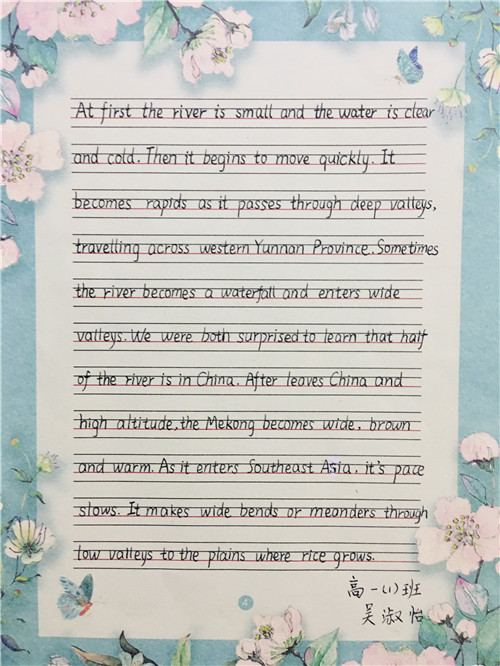 At first the river is small and the water is clear
and cold. Then it begins to move quickly. It
becomes rapids as it passes through deep valleys,
travelling across western Yunnan Province. Sometimes
the river becomes a waterfall and enters wide
valleys. We were both surprised to learn that half
of the river is in China. After leaves China and
high altitude, the Mekong becomes wide, brown
and warm. As it enters Southeast Asia, it's pace
slows. It makes wide bends or meanders through
low valleys to the plains where rice grows.
高一(1)班
吴淑怡
4